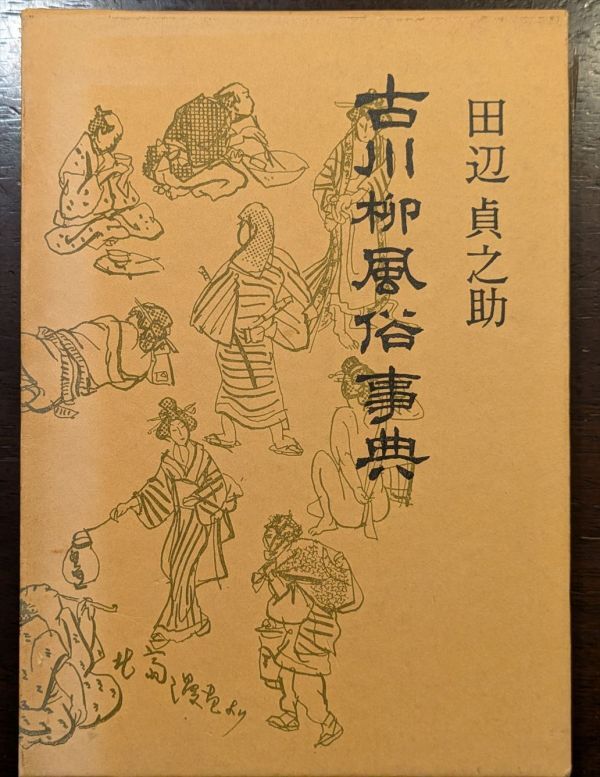 田辺貞之助
古川柳風俗事典
北斎漫画より